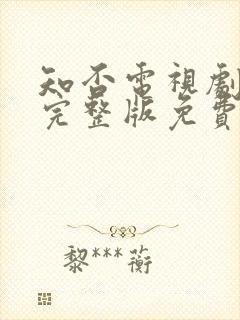 知否電視劇
完整版免費
黎***蘅